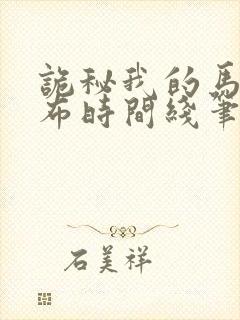 詭秘我的馬
布時間綫筆
石美祥